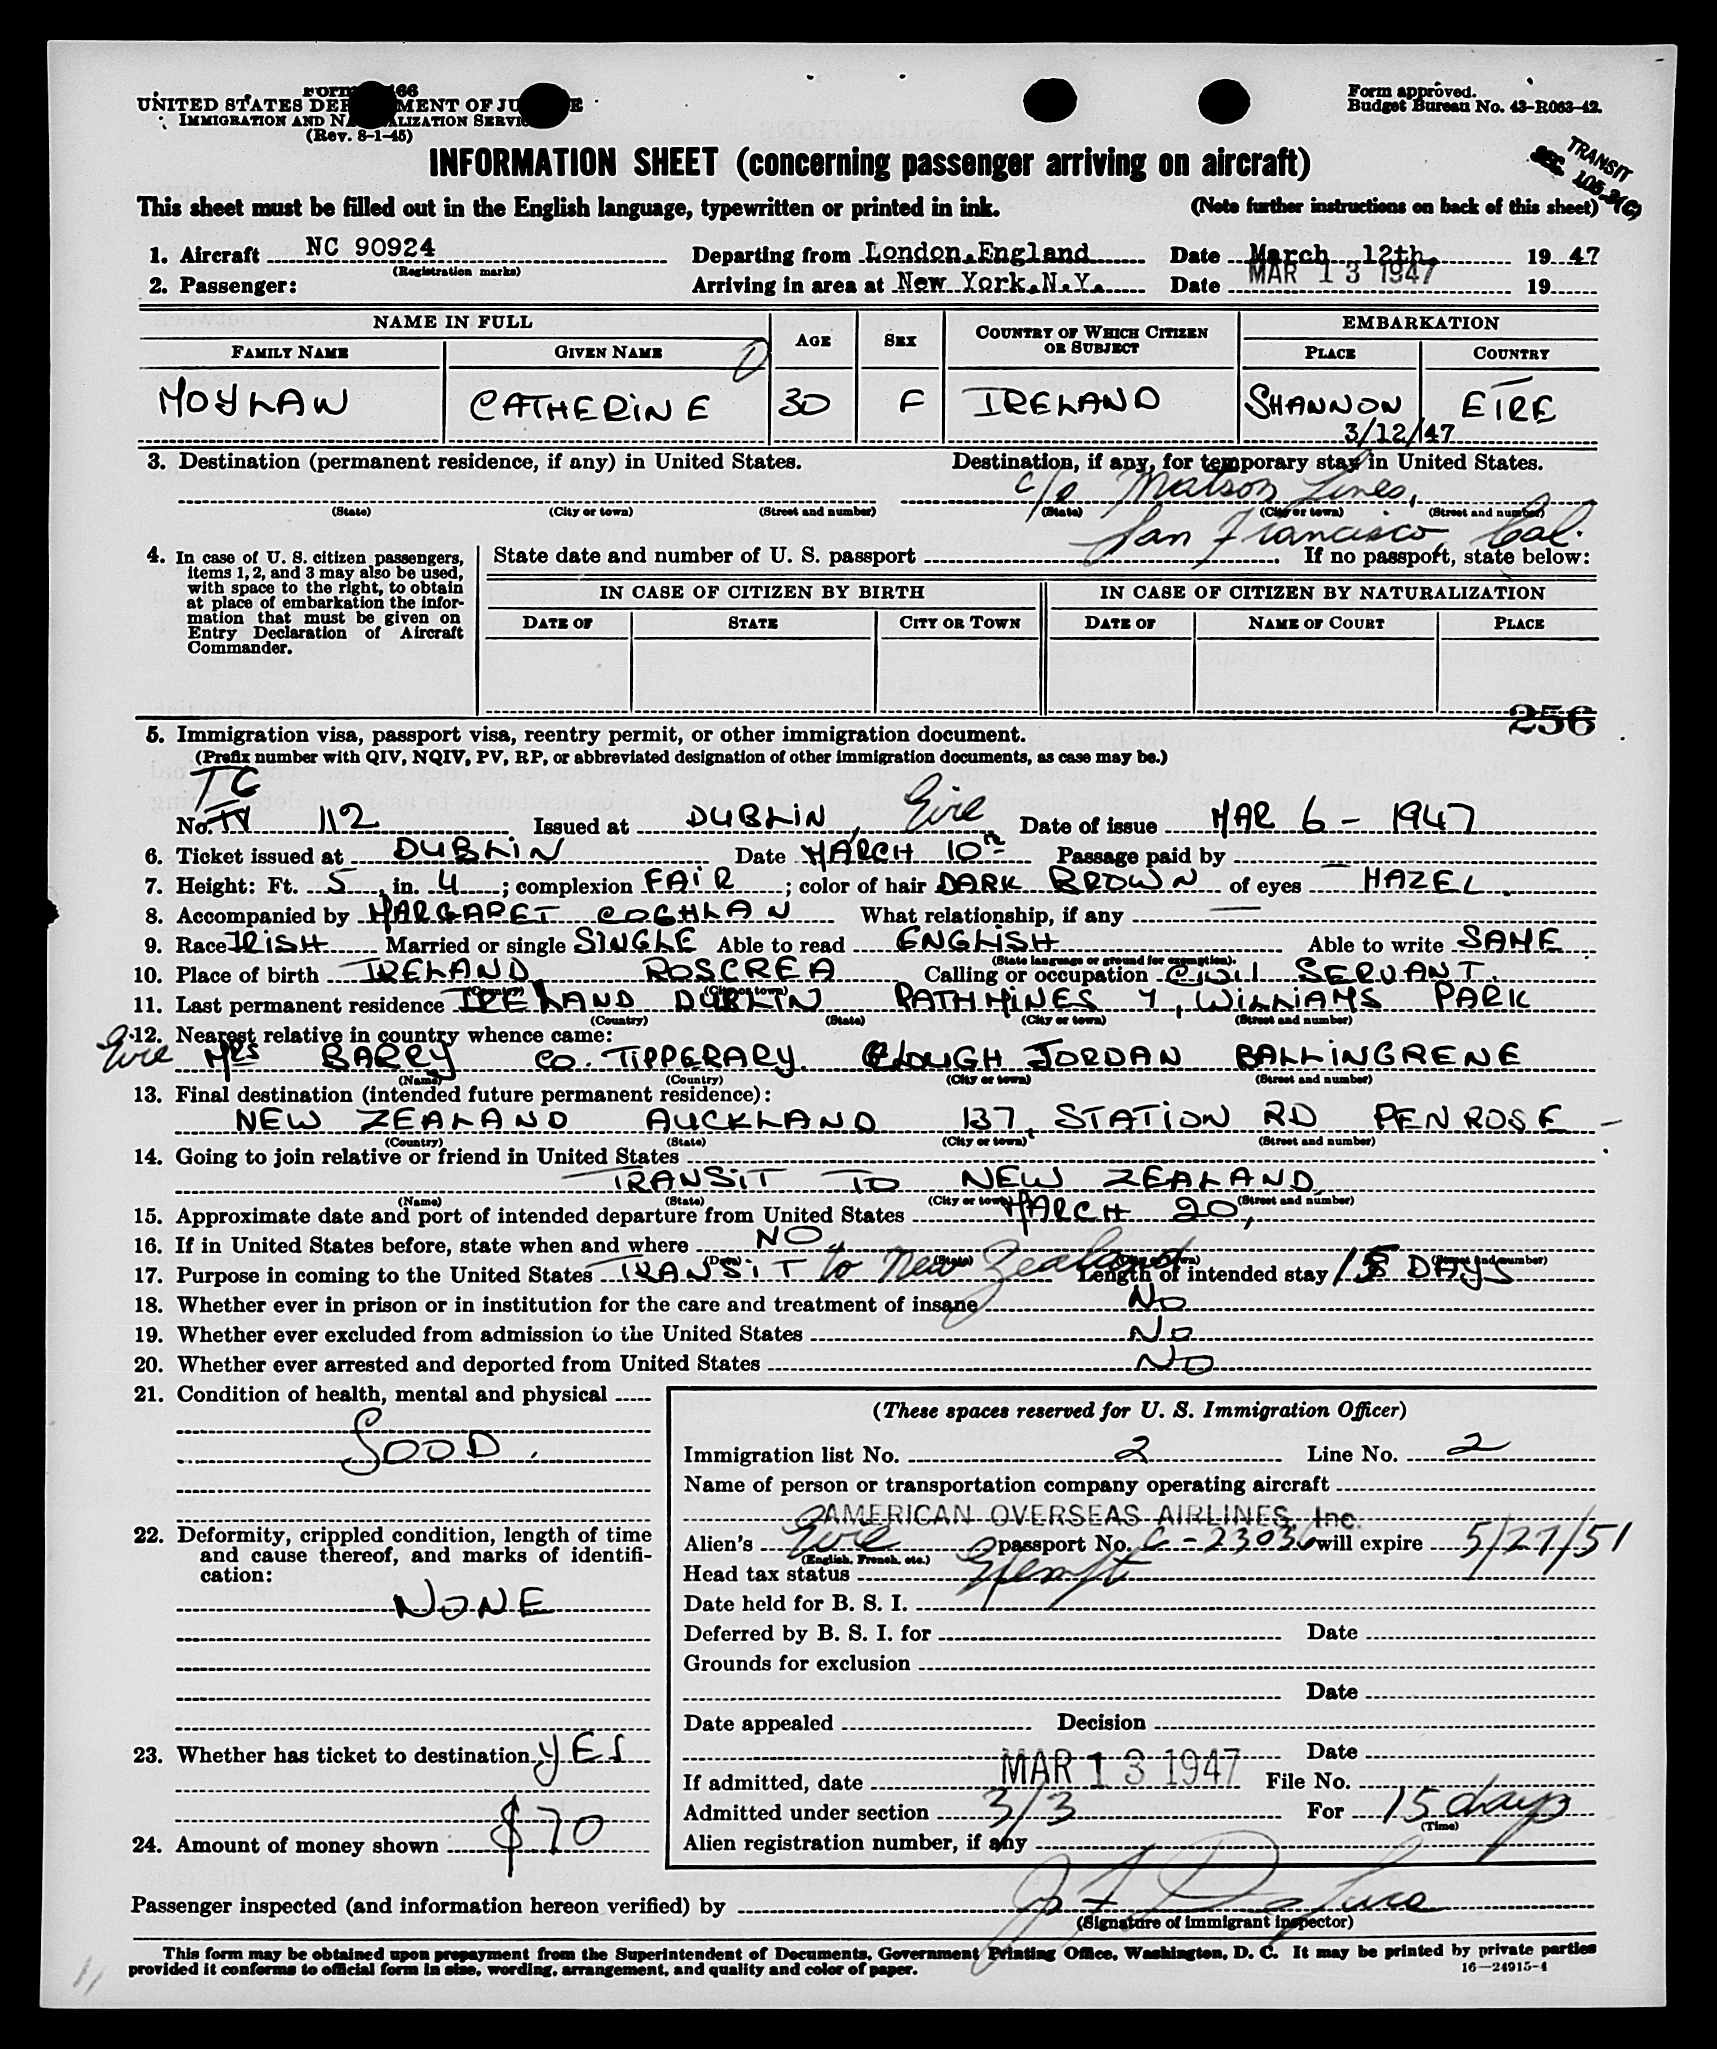 Form 466
UNITED STATES DEPARTMENT OF JUSTICE
IMMIGRATION AND NATURALIZATION SERVICE
(Rev. 8-1-45)
Form approved.
Budget Bureau No. 43-R063-42.
TRANSIT
SEC. 105.3(C)
INFORMATION SHEET (concerning passenger arriving on aircraft)
This sheet must be filled out in the English language, typewritten or printed in ink. (Note further instructions on back of this sheet)
1. Aircraft NC 90924 Departing from London, England Date March 12th, 19 47
(Registration marks)
2. Passenger: Arriving in area at New York, N.Y. Date MAR 13 1947 19
NAME IN FULL AGE SEX COUNTRY OF WHICH CITIZEN OR SUBJECT EMBARKATION
FAMILY NAME GIVEN NAME PLACE COUNTRY
MOYLAN CATHERINE 30 F IRELAND SHANNON EIRE
3/12/47
3. Destination (permanent residence, if any) in United States. Destination, if any, for temporary stay in United States.
c/o Matson Lines,
(State) (City or town) (Street and number) (State) (City or town) (Street and number)
San Francisco, Cal.
4. In case of U. S. citizen passengers, items 1, 2, and 3 may also be used, with space to the right, to obtain at place of embarkation the information that must be given on Entry Declaration of Aircraft Commander.
State date and number of U. S. passport If no passport, state below:
IN CASE OF CITIZEN BY BIRTH IN CASE OF CITIZEN BY NATURALIZATION
DATE OF STATE CITY OR TOWN DATE OF NAME OF COURT PLACE
256
5. Immigration visa, passport visa, reentry permit, or other immigration document.
(Prefix number with QIV, NQIV, PV, RP, or abbreviated designation of other immigration documents, as case may be.)
TC
No. TV 112 Issued at DUBLIN, Eire Date of issue MAR 6 - 1947
6. Ticket issued at DUBLIN Date MARCH 10th Passage paid by
7. Height: Ft. 5, in. 4; complexion FAIR; color of hair DARK BROWN of eyes HAZEL.
8. Accompanied by MARGARET COGHLAN What relationship, if any —
9. Race IRISH Married or single SINGLE Able to read ENGLISH Able to write SAME
(State language or ground for exemption).
10. Place of birth IRELAND ROSCREA Calling or occupation CIVIL SERVANT.
(Country) (City or town)
11. Last permanent residence IRELAND DUBLIN RATHMINES 7, WILLIAMS PARK
(Country) (State) (City or town) (Street and number)
12. Nearest relative in country whence came:
Eire Mrs BARRY CO. TIPPERARY. CLOUGH JORDAN BALLINGRENE
(Name) (Country) (City or town) (Street and number)
13. Final destination (intended future permanent residence):
NEW ZEALAND AUCKLAND 137, STATION RD PENROSE –
(Country) (State) (City or town) (Street and number)
14. Going to join relative or friend in United States
TRANSIT TO NEW ZEALAND
(Name) (State) (City or town) (Street and number)
15. Approximate date and port of intended departure from United States MARCH 20,
16. If in United States before, state when and where NO
(Date) (State) (City or town) (Street and number)
17. Purpose in coming to the United States TRANSIT to New Zealand Length of intended stay 15 DAYS
18. Whether ever in prison or in institution for the care and treatment of insane NO
19. Whether ever excluded from admission to the United States NO
20. Whether ever arrested and deported from United States NO
21. Condition of health, mental and physical
GOOD.
22. Deformity, crippled condition, length of time and cause thereof, and marks of identification:
NONE
23. Whether has ticket to destination YES
24. Amount of money shown $70
(These spaces reserved for U. S. Immigration Officer)
Immigration list No. 2 Line No. 2
Name of person or transportation company operating aircraft
AMERICAN OVERSEAS AIRLINES, Inc.
Alien's Eire passport No. C-23036 will expire 5/27/51
(English, French, etc.)
Head tax status Exempt
Date held for B. S. I.
Deferred by B. S. I. for Date
Grounds for exclusion
Date
Date appealed Decision
Date
If admitted, date MAR 13 1947 File No.
Admitted under section 3/3 For 15 days
(Time)
Alien registration number, if any
Passenger inspected (and information hereon verified) by
(Signature of immigrant inspector)
This form may be obtained upon prepayment from the Superintendent of Documents, Government Printing Office, Washington, D. C. It may be printed by private parties
provided it conforms to official form in size, wording, arrangement, and quality and color of paper.
16—24915-4